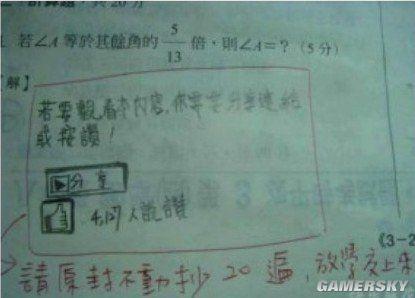 計算題：共20分
1. 若∠A等於其餘角的 5/13 倍，則∠A=？（5分）
【解】
若要觀看本內容，你要先分享連結
或按讚！
分享
4,127人說讚
《3-2
請原封不動抄20遍，放學交上來
GAMERSKY